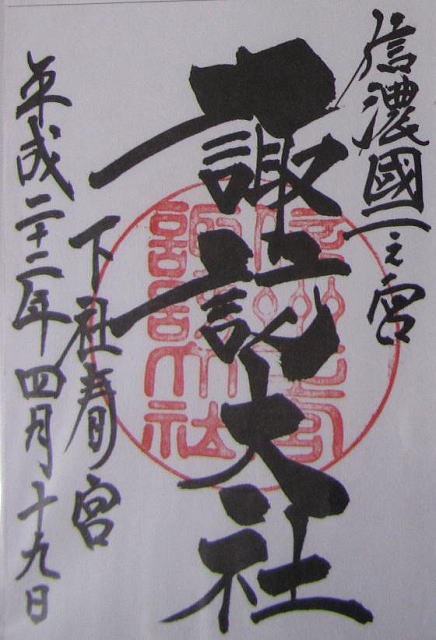 信濃國一之宮
諏訪大社
下社春宮
平成二十二年四月十九日